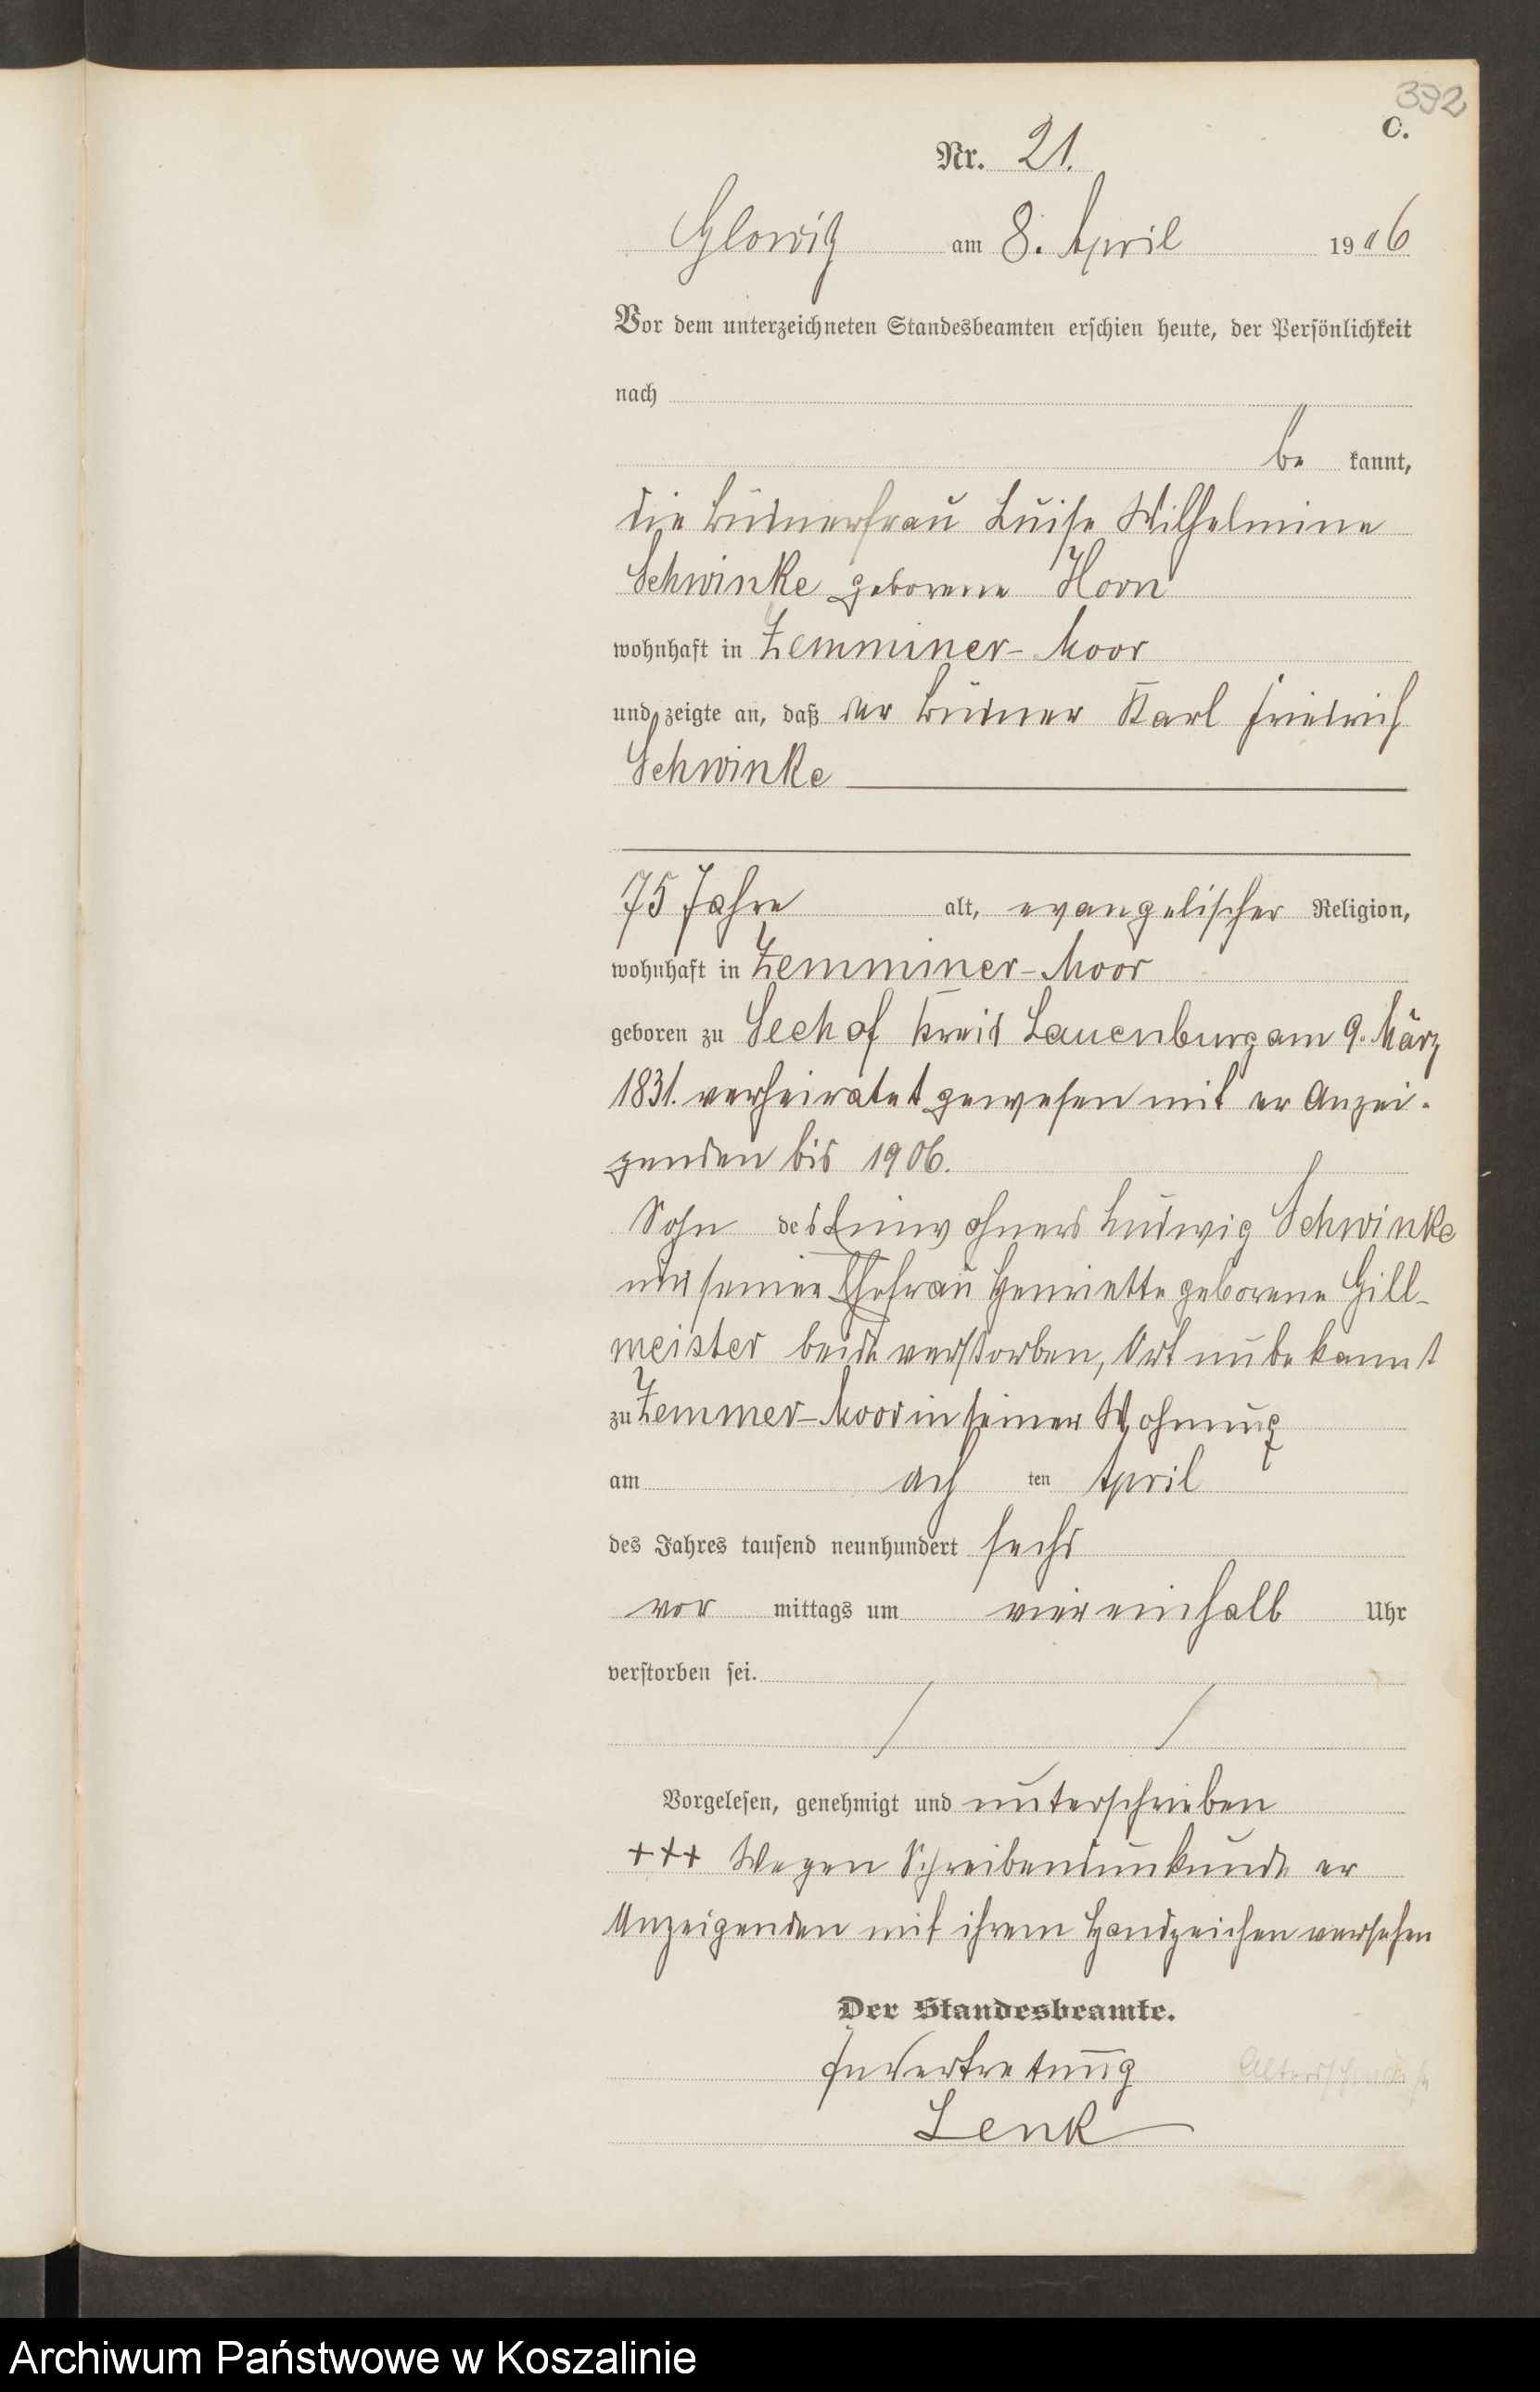 392
C.
Nr. 21.
Glowitz am 8. April 1906
Vor dem unterzeichneten Standesbeamten erschien heute, der Persönlichkeit
nach
be kannt,
die Büdnerfrau Luise Wilhelmine
Schwinke geborene Horn
wohnhaft in Zemminer-Moor
und zeigte an, daß der Büdner Karl Friedrich
Schwinke
75 Jahre alt, evangelischer Religion,
wohnhaft in Zemminer-Moor
geboren zu Seehof Kreis Lauenburg am 9. März
1831. verheiratet gewesen mit der Anzei-
genden bis 1906.
Sohn des Einwohners Ludwig Schwinke
und seiner Ehefrau Henriette geborene Gill-
meister beide verstorben, Ort unbekannt
zu Zemmer-Moor in seiner Wohnung
am ach ten April
des Jahres tausend neunhundert sechs
vor mittags um viereinhalb Uhr
verstorben sei.
Vorgelesen, genehmigt und unterschrieben
+++ Wegen Schreibensunkunde der
Anzeigenden mit ihrem Handzeichen versehen
Der Standesbeamte.
In Vertretung
Lenk
Archiwum Państwowe w Koszalinie